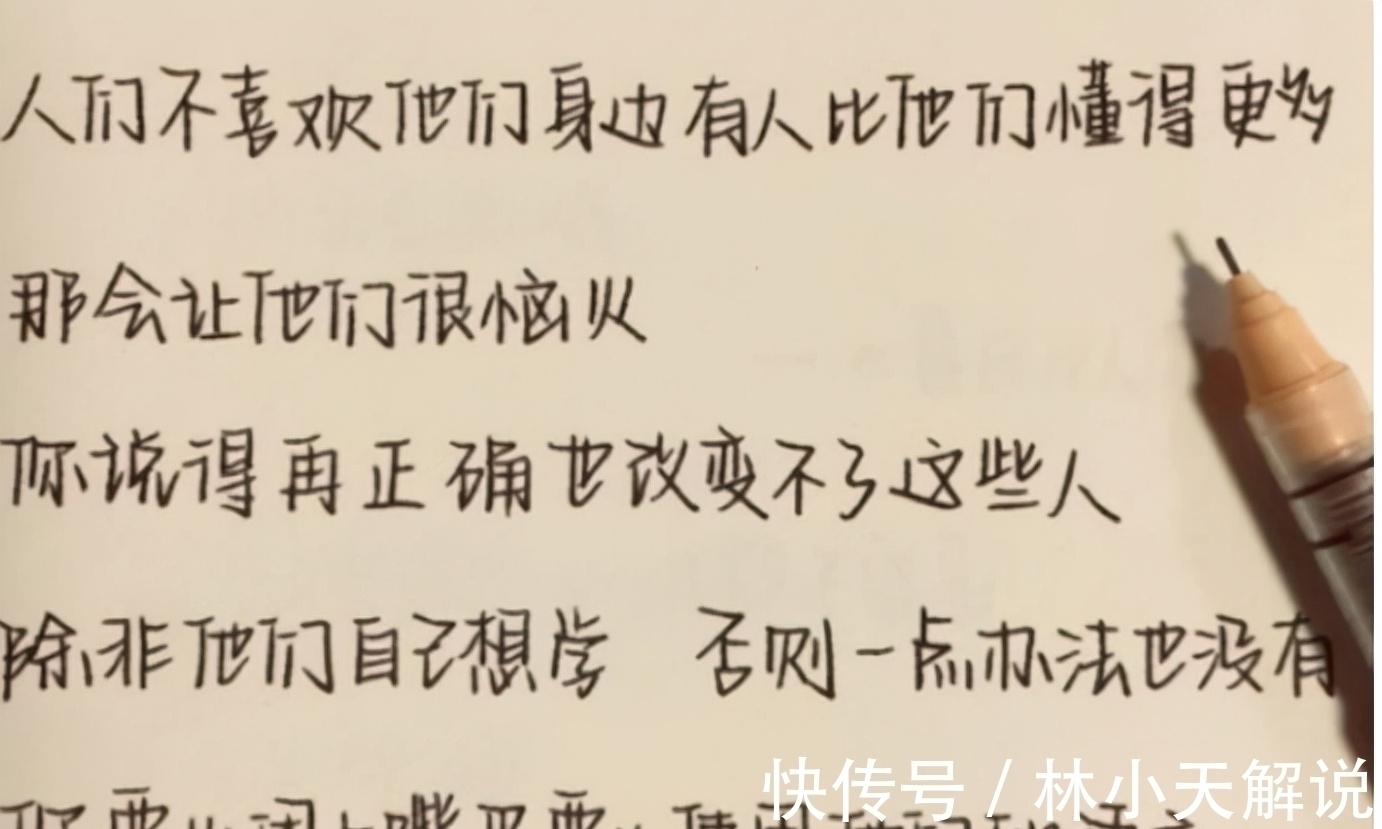 人们不喜欢他们身边有人比他们懂得更多
那会让他们很恼火
你说得再正确也改变不了这些人
除非他们自己想学 否则一点办法也没有
快传号 / 林小天解说